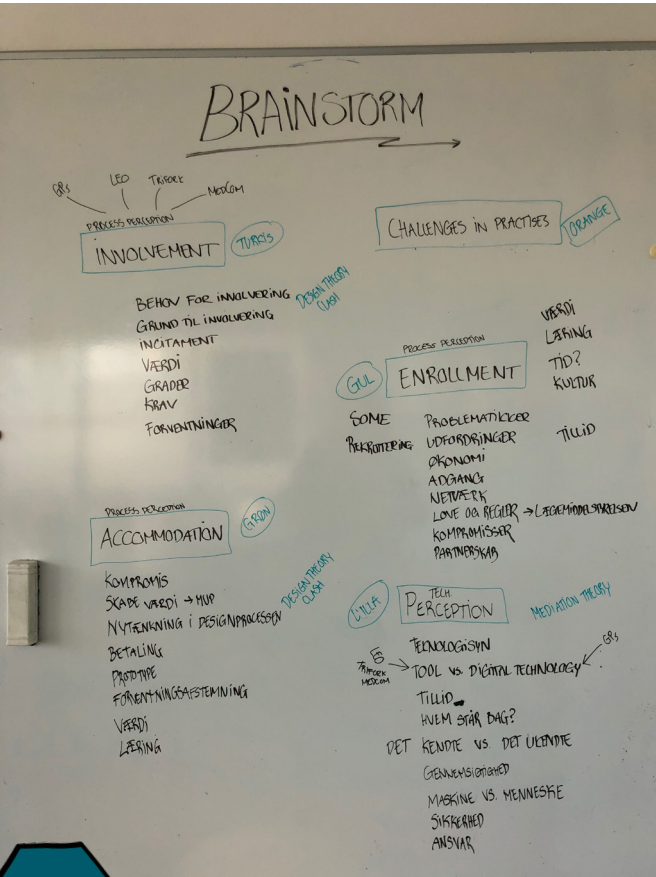 BRAINSTORM
GPs
LEO
TRIFORK
MEDCOM
PROCESS PERCEPTION
INVOLVEMENT
TURKIS
BEHOV FOR INVOLVERING
GRUND TIL INVOLVERING
INCITAMENT
VÆRDI
GRADER
KRAV
FORVENTNINGER
DESIGN THEORY
CLASH
CHALLENGES IN PRACTISES
ORANGE
PROCESS PERCEPTION
ENROLLMENT
GUL
VÆRDI
LÆRING
TID?
KULTUR
TILLID
SOME
REKRUTTERING
PROBLEMATIKKER
UDFORDRINGER
ØKONOMI
ADGANG
NETVÆRK
LOVE OG REGLER → LÆGEMIDDELSTYRELSEN
KOMPROMISSER
PARTNERSKAB
PROCESS PERCEPTION
ACCOMMODATION
GRØN
KOMPROMIS
SKABE VÆRDI → MVP
NYTÆNKNING I DESIGNPROCESSEN
BETALING
PROTOTYPE
FORVENTNINGSAFSTEMNING
VÆRDI
LÆRING
DESIGN THEORY
CLASH
TECH.
PERCEPTION
LILLA
MEDIATION THEORY
TEKNOLOGISYN
TRIFORK
MEDCOM
TOOL VS. DIGITAL TECHNOLOGY
GPs
TILLID
HVEM STÅR BAG?
DET KENDTE VS. DET UKENDTE
GENNEMSIGTIGHED
MASKINE VS. MENNESKE
SIKKERHED
ANSVAR